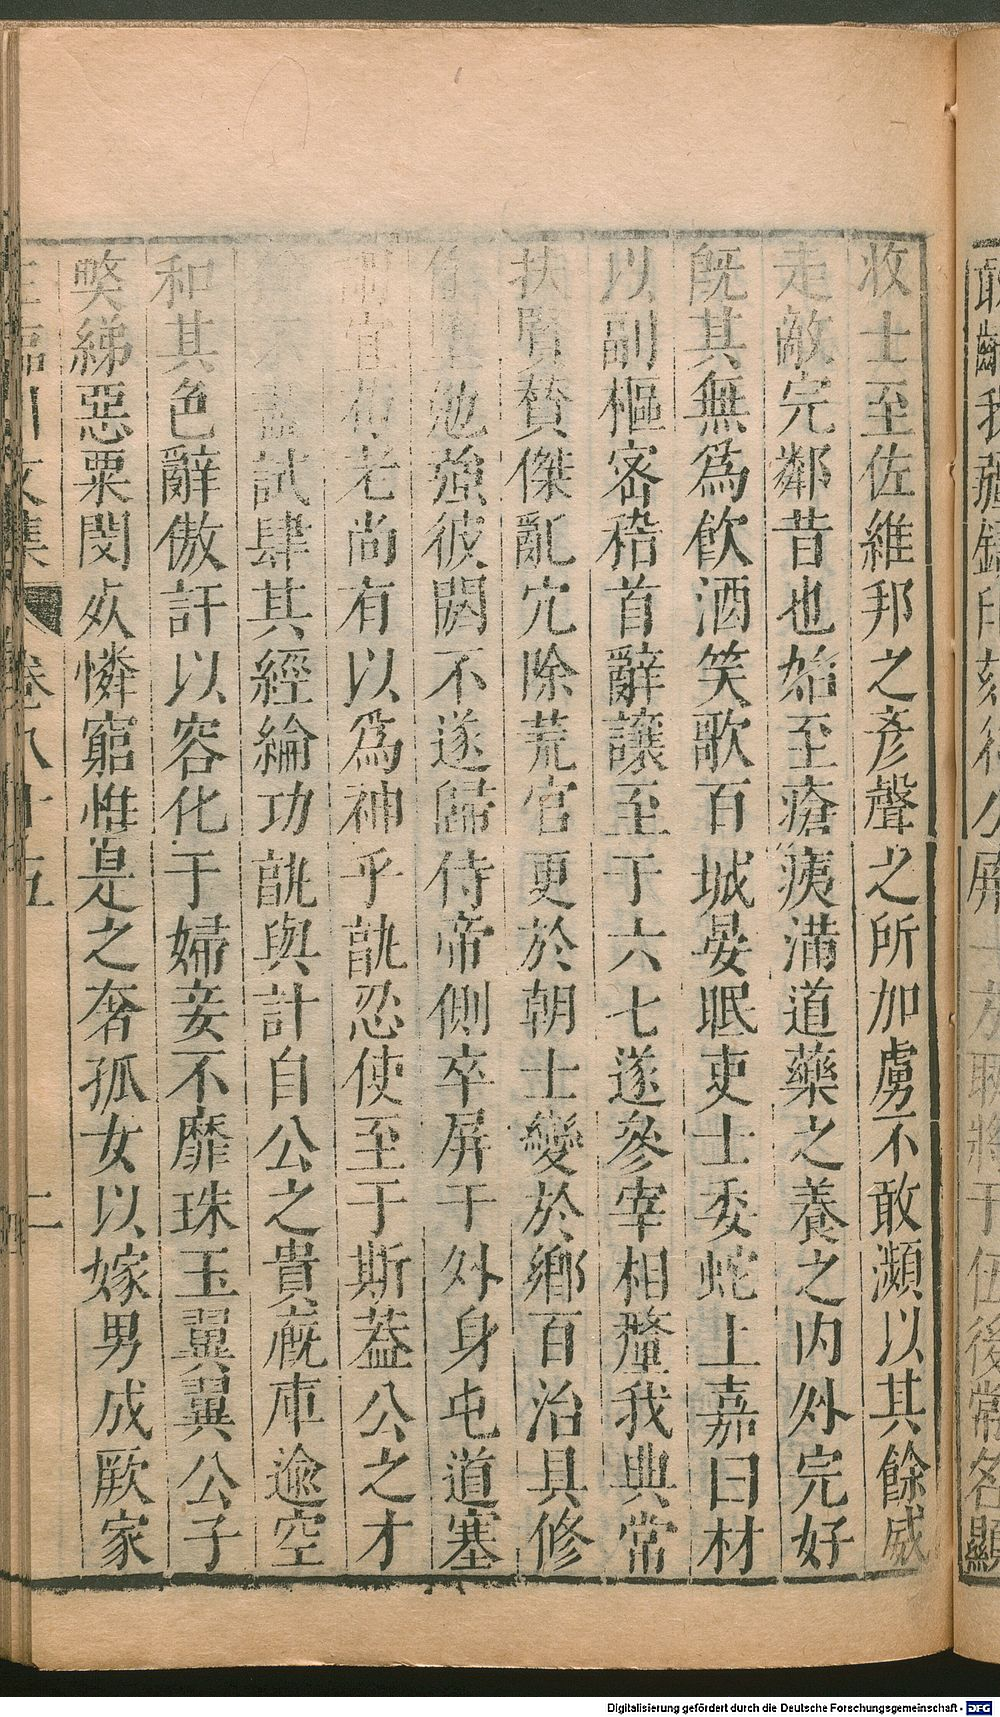 敢齮我疆
收士至佐維邦之彥聲之所加虜不敢瀕以其餘威
走敵完鄰昔也始至瘡痍滿道藥之養之内外完好
既其無爲飲酒笑歌百城晏眠吏士委蛇上嘉曰材
以副樞宻稽首辭讓至于六七遂參宰相釐我典常
扶賢贊傑亂冗除荒官更於朝士變於鄉百治具修
偷墮勉強彼閼不遂歸侍帝側卒屏于外身屯道塞
謂宜耇老尚有以爲神乎孰忍使至于斯蓋公之才
試肆其經綸功孰與計自公之貴廐庫逾空
和其色辭傲訐以容化于婦妾不靡珠玉翼翼公子
獘綈惡粟閔死憐窮惟是之奢孤女以嫁男成厥家
王臨川文集 卷八十五 二
Digitalisierung gefördert durch die Deutsche Forschungsgemeinschaft - DFG